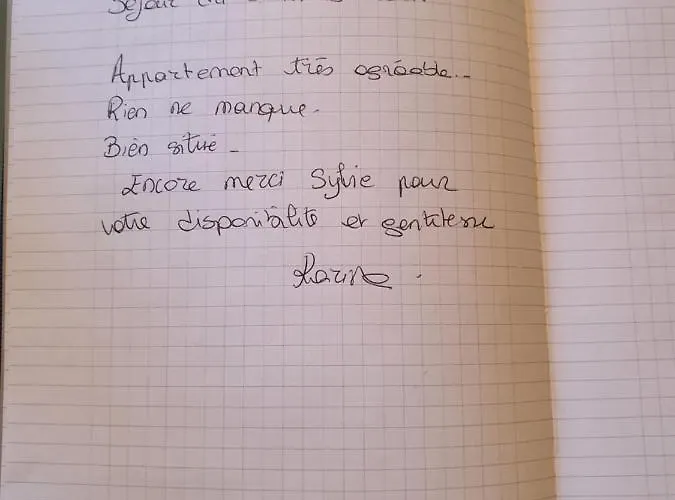 Séjour du
Appartement très agréable..
Rien ne manque.
Bien situé -
Encore merci Sylvie pour
votre disponibilité et gentillesse
Karine .